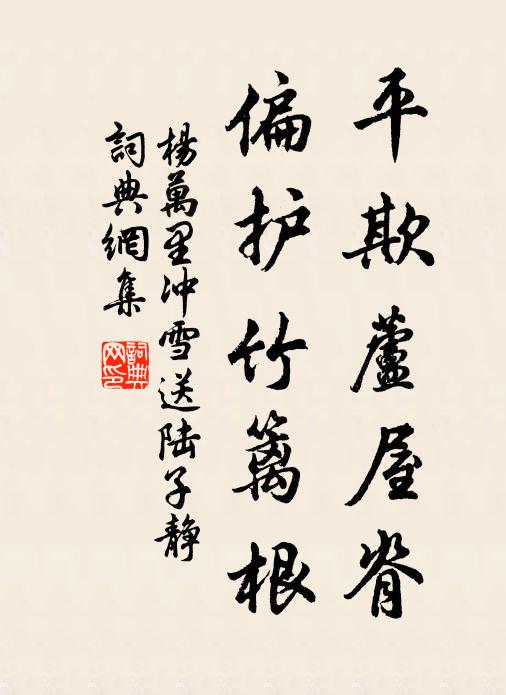 平欺蘆屋脊
偏护竹籬根
楊萬里冲雪送陆子静
詞典網集
詞典網印